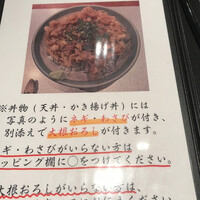 ※丼物(天丼・かき揚げ丼)には
写真のようにネギ・わさびが付き、
別添えで大根おろしが付きます。
ネギ・わさびがいらない方は
ッピング欄に○をつけてください。
大根おろしがいらない方は、